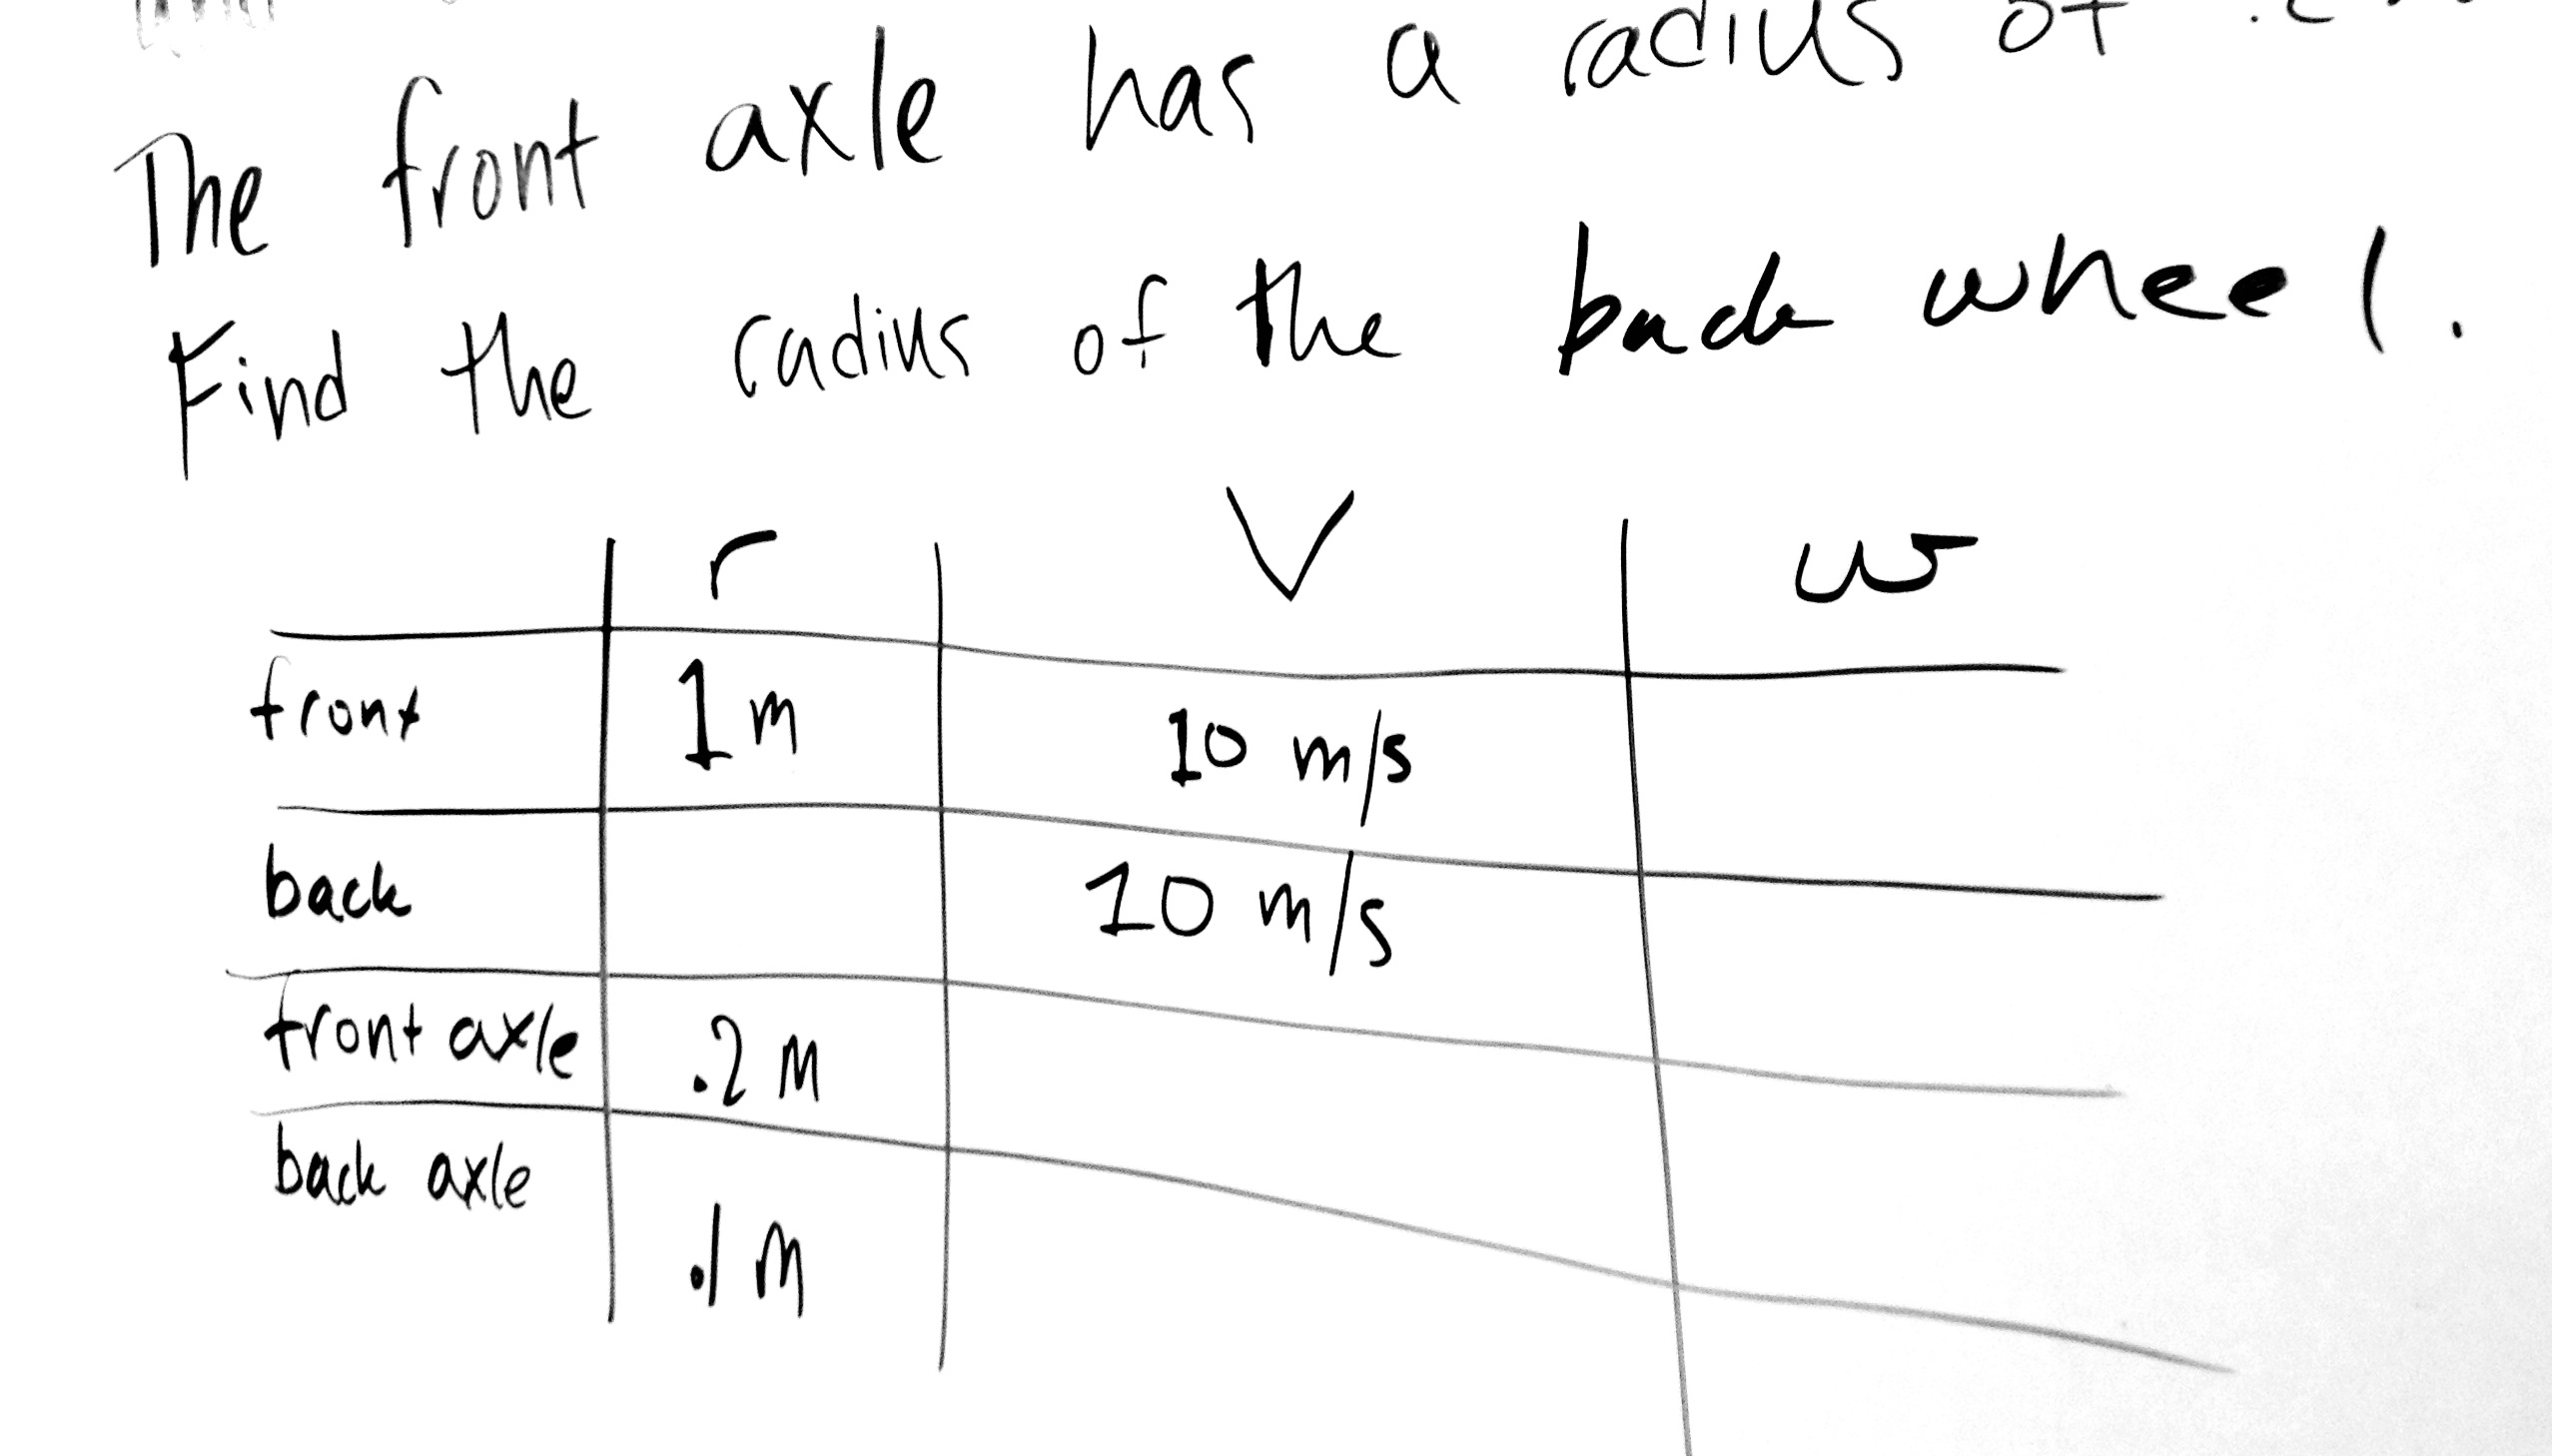 The front axle has a radius of
Find the radius of the back wheel.
r V ω
front 1 m 10 m/s
back 10 m/s
front axle .2 m
back axle .1 m